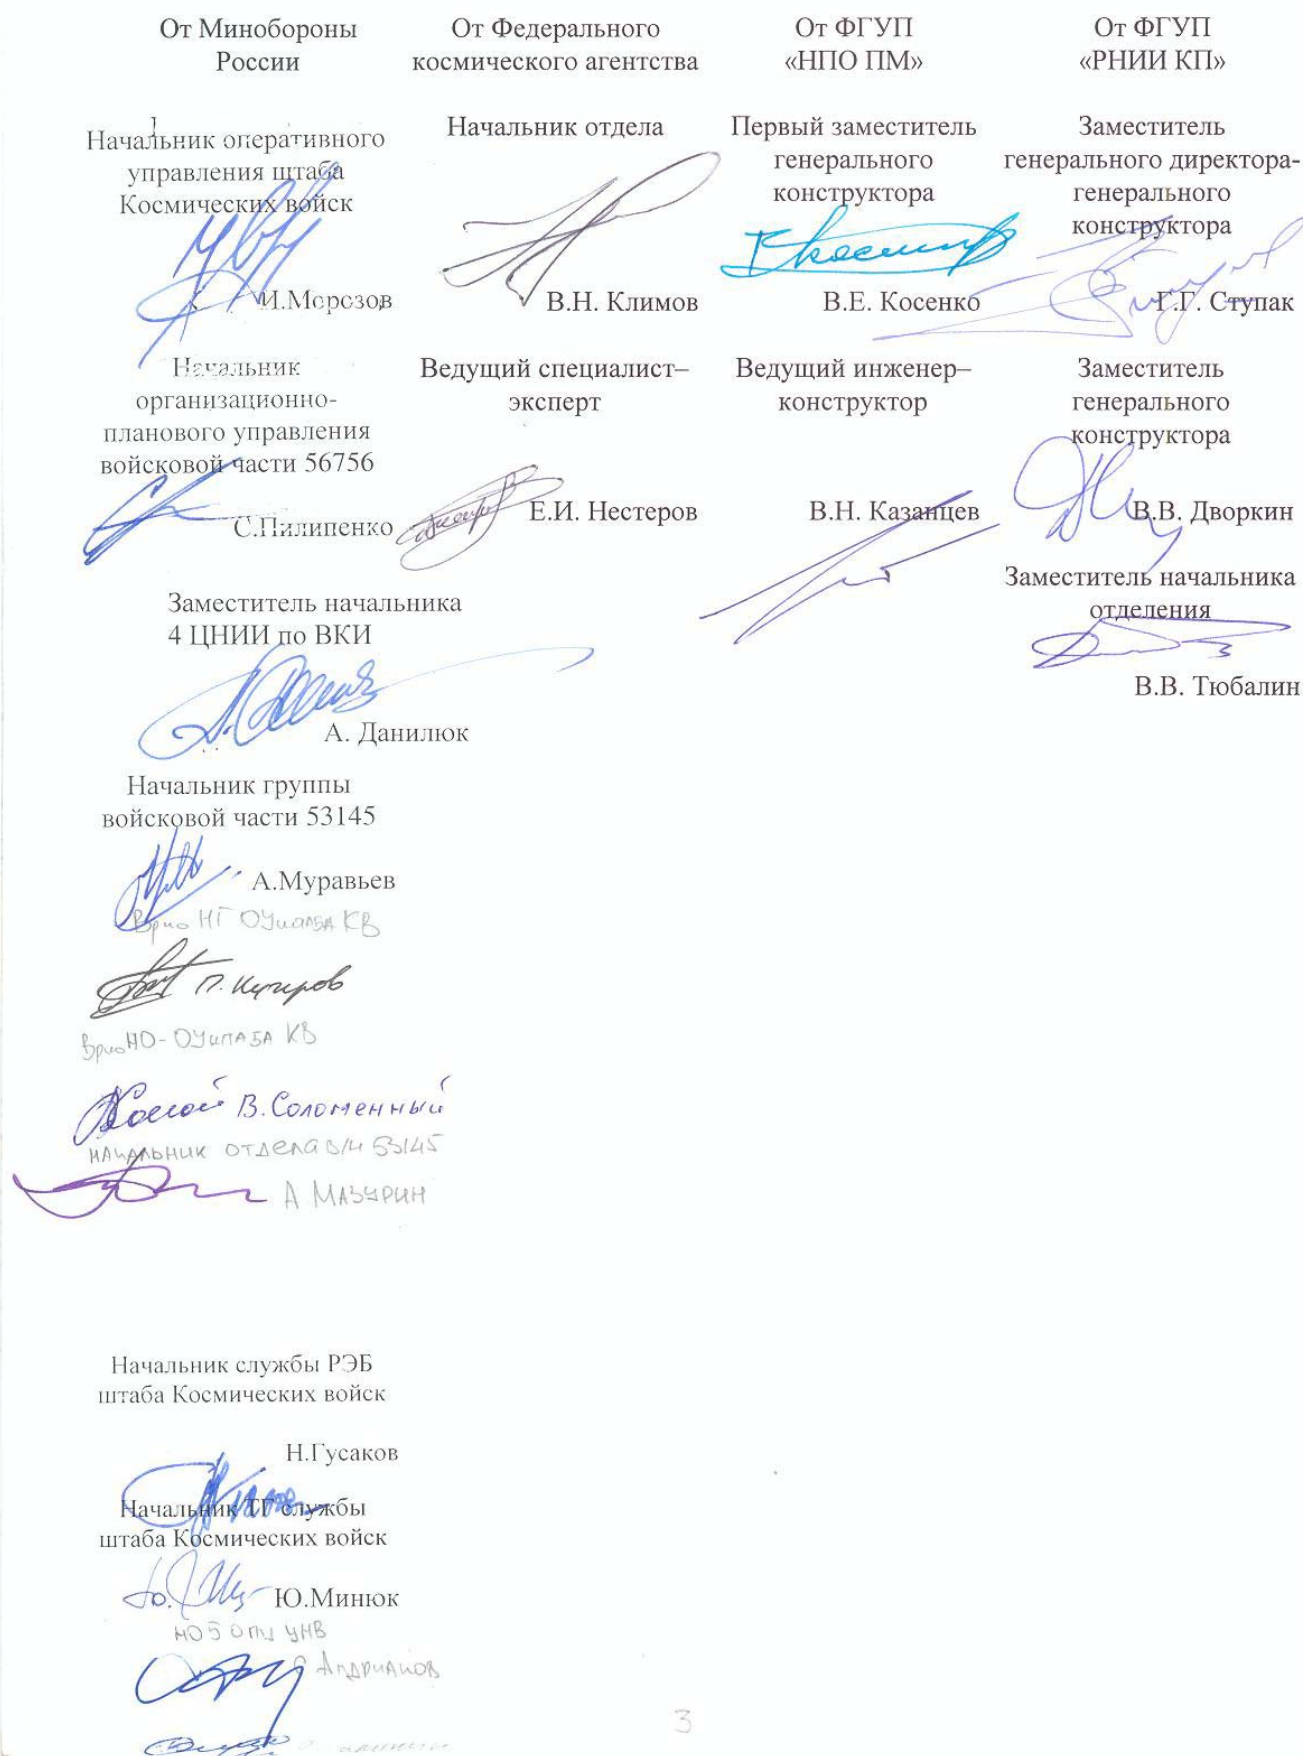 От Минобороны
России
Начальник оперативного
управления штаба
Космических войск
И.Морозов
Начальник
организационно-
планового управления
войсковой части 56756
С.Пилипенко
Заместитель начальника
4 ЦНИИ по ВКИ
А. Данилюк
Начальник группы
войсковой части 53145
А.Муравьев
Врио НГ КВ
П. Кутиров
Врио НО- КВ
В. Соломенный
начальник отдела в/ч 53145
А Мазурин
Начальник службы РЭБ
штаба Космических войск
Н.Гусаков
Начальник ТГ службы
штаба Космических войск
Ю.Минюк
УНВ
Андрианов
От Федерального
космического агентства
Начальник отдела
В.Н. Климов
Ведущий специалист–
эксперт
Е.И. Нестеров
От ФГУП
«НПО ПМ»
Первый заместитель
генерального
конструктора
В.Е. Косенко
Ведущий инженер–
конструктор
В.Н. Казанцев
От ФГУП
«РНИИ КП»
Заместитель
генерального директора-
генерального
конструктора
Г.Г. Ступак
Заместитель
генерального
конструктора
В.В. Дворкин
Заместитель начальника
отделения
В.В. Тюбалин
3